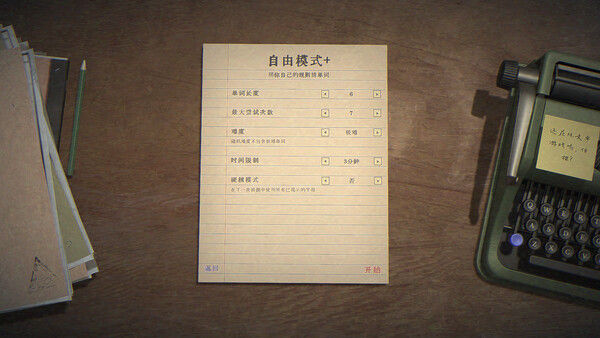 自由模式+
用你自己的规则猜单词
单词长度 6
最大尝试次数 7
难度 极难
随机难度不包含极难单词
时间限制 3分钟
硬核模式 否
在下一次猜测中使用所有已揭示的字母
返回 开始